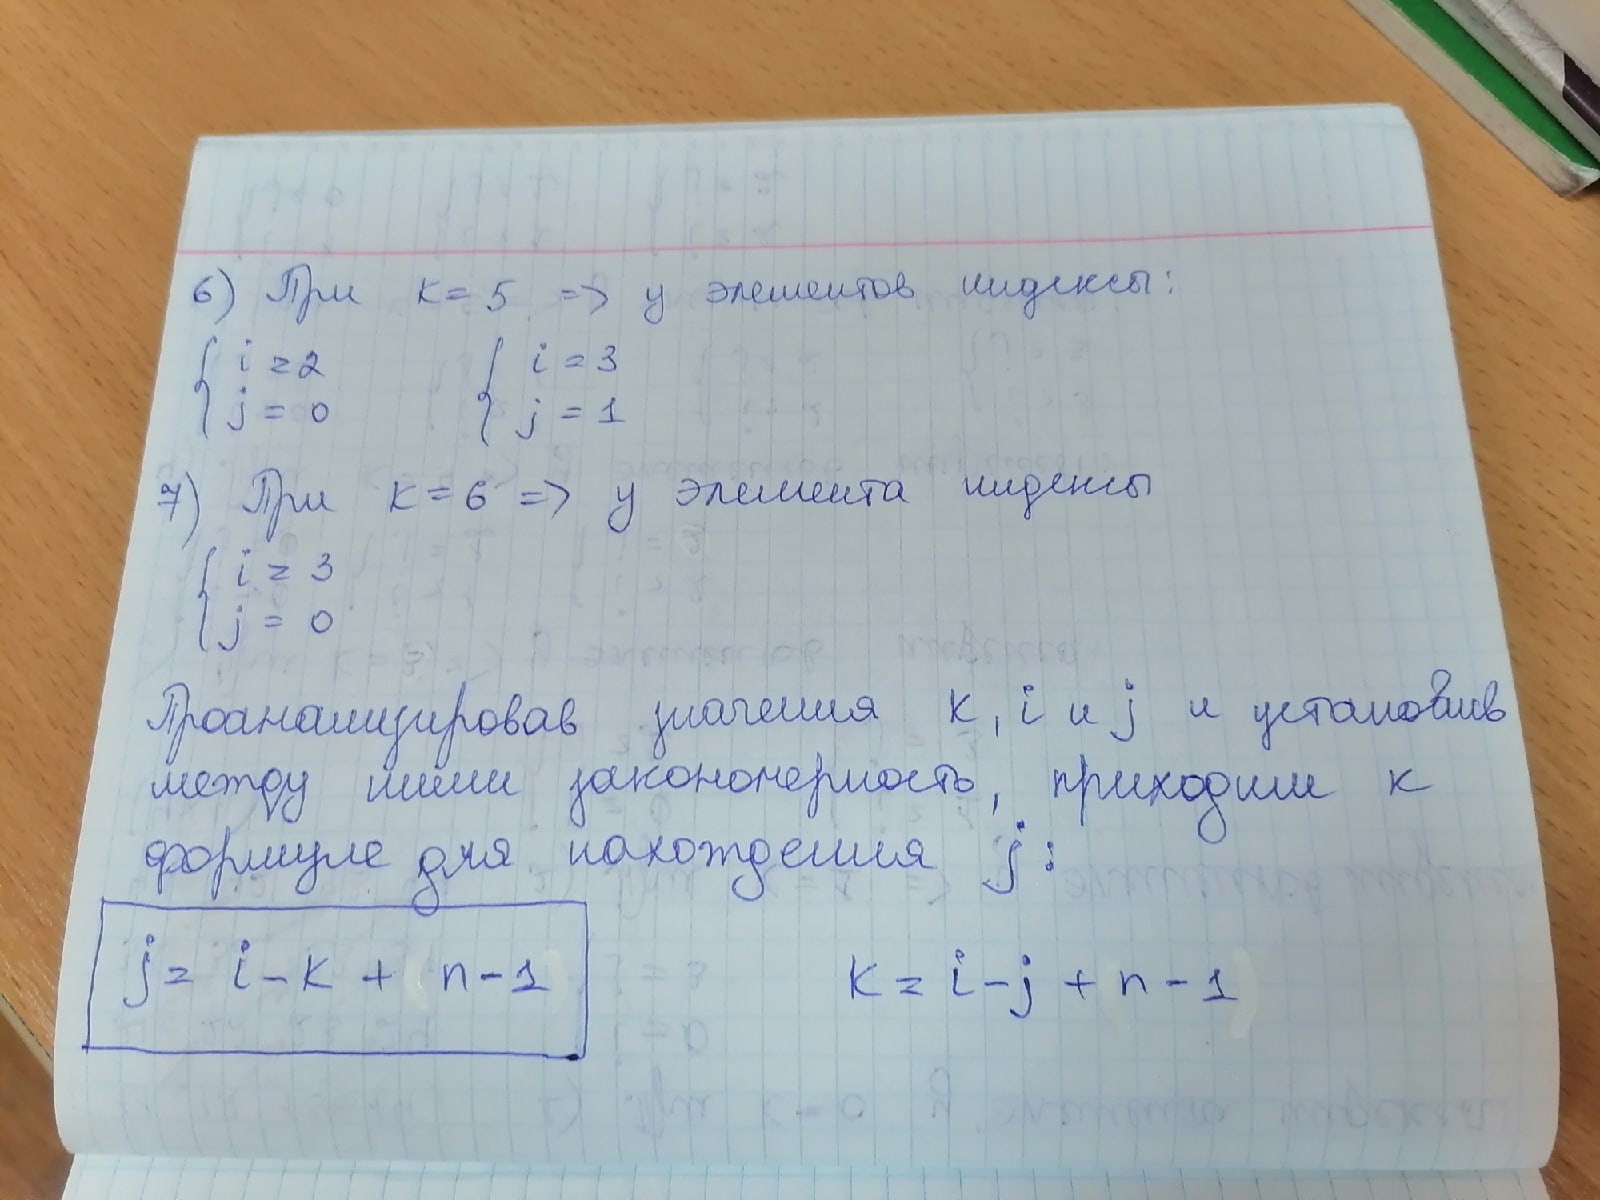 6) При k = 5 => у элементов индексы:
{ i = 2 { i = 3
{ j = 0 { j = 1
7) При k = 6 => у элемента индексы
{ i = 3
{ j = 0
Проанализировав значения k, i и j и установив
между ними закономерность, приходим к
формуле для нахождения j:
j = i - k + n - 1 k = i - j + n - 1